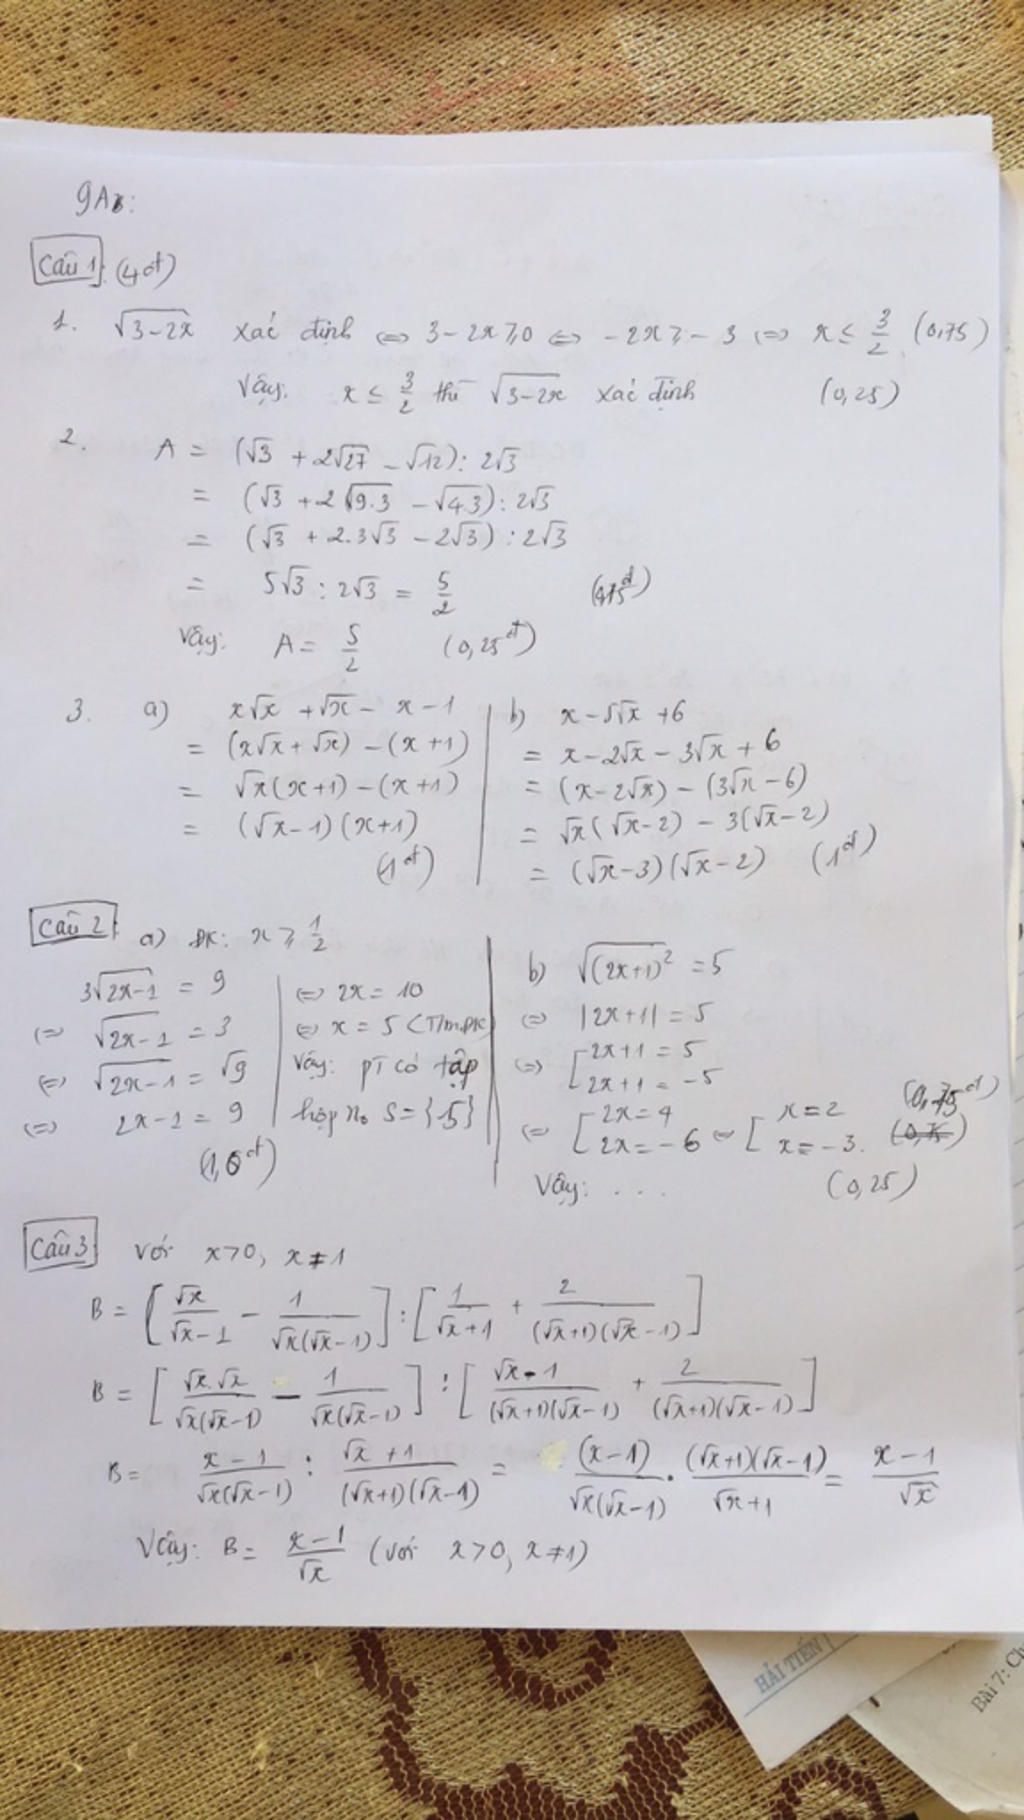 9A8:
Câu 1. (4đ)
1. √(3-2x) xác định ⇔ 3-2x ≥ 0 ⇔ -2x ≥ -3 ⇔ x ≤ 3/2 (0,75)
Vậy: x ≤ 3/2 thì √(3-2x) xác định (0,25)
2. A = (√3 + 2√27 - √12) : 2√3
= (√3 + 2√(9.3) - √(4.3)) : 2√3
= (√3 + 2.3√3 - 2√3) : 2√3
= 5√3 : 2√3 = 5/2
Vậy: A = 5/2 (0,25đ)
3. a) x√x + √x - x - 1
= (x√x + √x) - (x+1)
= √x(x+1) - (x+1)
= (√x-1)(x+1)
(1đ)
b) x - 5√x + 6
= x - 2√x - 3√x + 6
= (x-2√x) - (3√x-6)
= √x(√x-2) - 3(√x-2)
= (√x-3)(√x-2) (1đ)
Câu 2. a) ĐK: x ≥ 1/2
3√(2x-1) = 9
⇔ √(2x-1) = 3
⇔ √(2x-1) = √9
⇔ 2x-1 = 9
⇔ 2x = 10
⇔ x = 5 (T/m ĐK)
Vậy: pt có tập
hợp no S={5}
b) √(2x+1)² = 5
⇔ |2x+1| = 5
⇔ [2x+1 = 5
2x+1 = -5
⇔ [2x = 4 ⇔ [x = 2 (0,75đ)
2x = -6 x = -3. (0,75)
Vậy: . . . (0,25)
Câu 3 Với x>0, x≠1
B = [√x/(√x-1) - 1/(√x(√x-1))] : [1/(√x+1) + 2/((√x+1)(√x-1))]
B = [√x.√x/(√x(√x-1)) - 1/(√x(√x-1))] : [(√x-1)/((√x+1)(√x-1)) + 2/((√x+1)(√x-1))]
B = (x-1)/(√x(√x-1)) : (√x+1)/((√x+1)(√x-1)) = (x-1)/(√x(√x-1)) . (√x+1)(√x-1)/(√x+1) = (x-1)/√x
Vậy: B = (x-1)/√x (với x>0, x≠1)
HẢI TIẾN
Bài 7: Ch